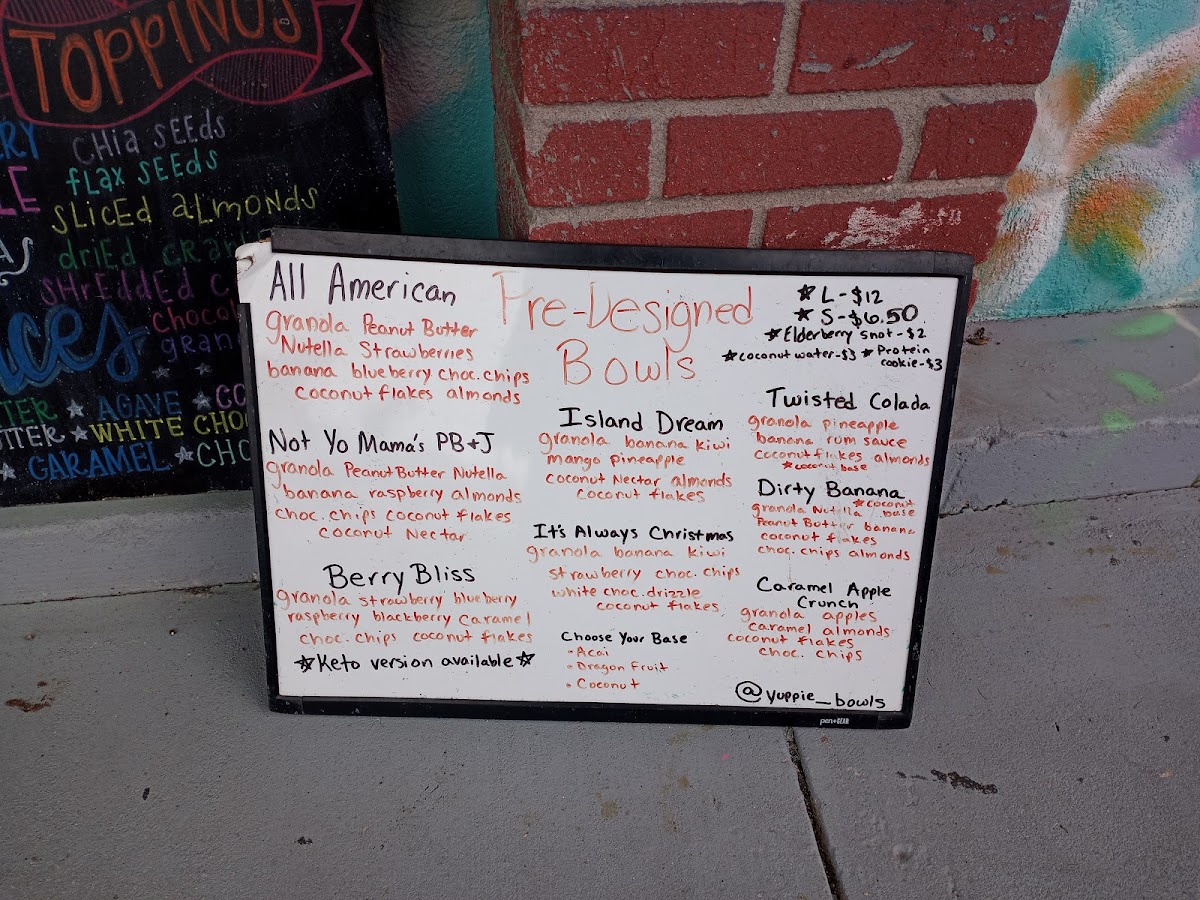 TOPPINGS
CHia SEEds
fLax SEEds
SLiCEd aLmONds
driEd
SHrEddEd
CHOCOL
GRAN
AGAVE ★ CO
★ WHITE CHO
★ CARAMEL ★ CHO
Pre-Designed
Bowls
All American
granola Peanut Butter
Nutella Strawberries
banana blueberry choc.chips
coconut flakes almonds
Not Yo Mama's PB+J
granola Peanut Butter Nutella
banana raspberry almonds
choc.chips coconut flakes
coconut Nectar
Berry Bliss
granola strawberry blueberry
raspberry blackberry caramel
choc.chips coconut flakes
☆Keto version available☆
Island Dream
granola banana kiwi
mango pineapple
coconut Nectar almonds
coconut flakes
It's Always Christmas
granola banana kiwi
strawberry choc.chips
white choc.drizzle
coconut flakes
Choose Your Base
• Acai
• Dragon Fruit
• Coconut
★ L-$12
★ S-$6.50
★ Elderberry shot-$2
★coconut water-$3 ★ Protein
cookie-$3
Twisted Colada
granola pineapple
banana rum sauce
coconut flakes almonds
★coconut base
Dirty Banana
★coconut
granola Nutella base
Peanut Butter banana
coconut flakes
choc.chips almonds
Caramel Apple
Crunch
granola apples
caramel almonds
coconut flakes
choc. chips
@yuppie_bowls
pen+GEAR